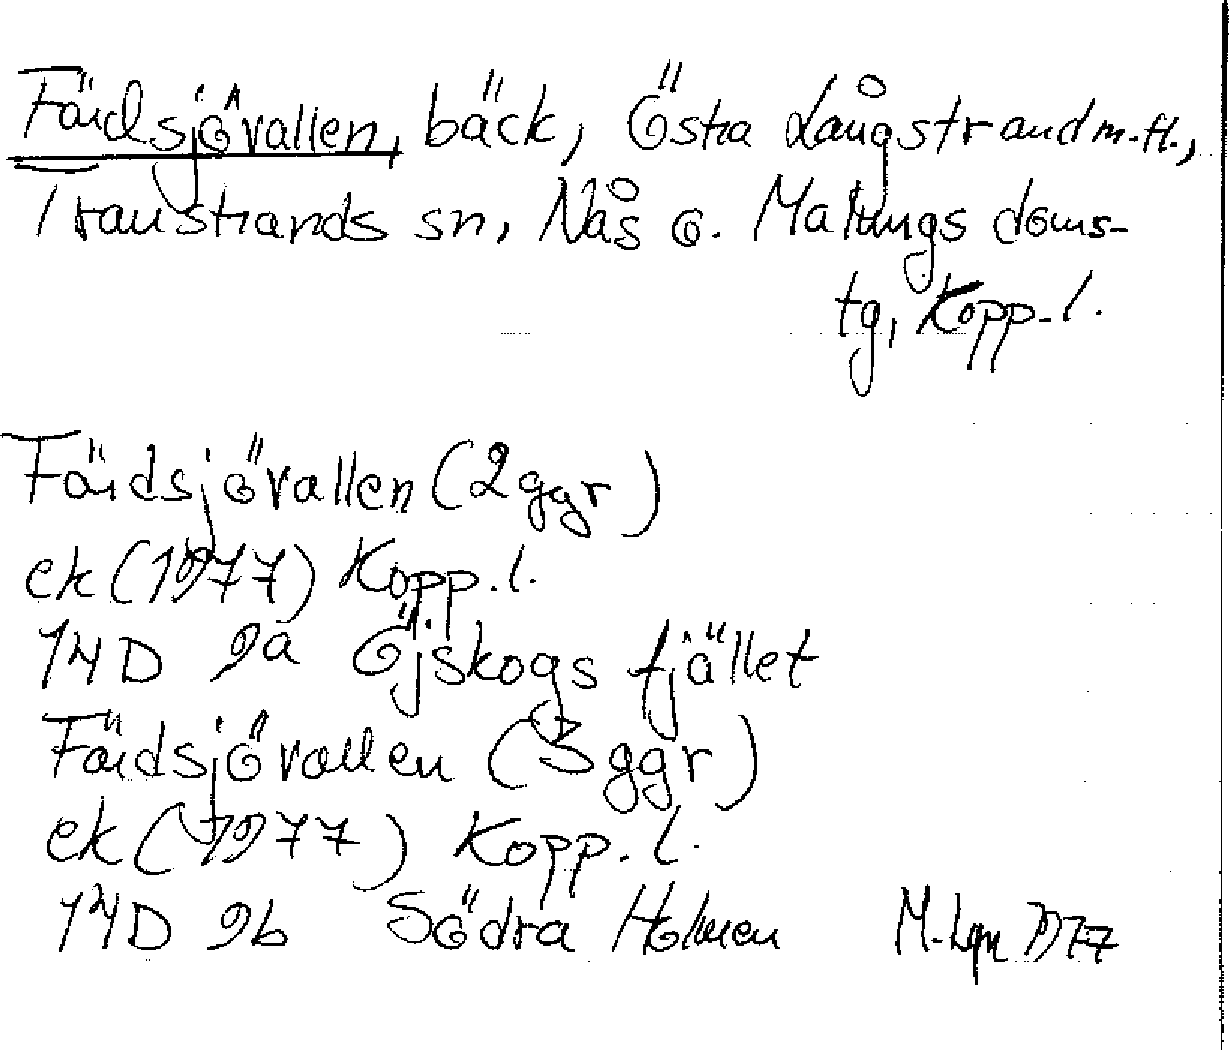 Färdsjövallen, bäck, Östra Långstrand m.fl.,
Transtrands sn, Nås o. Malungs doms-
tg, Kopp. l.
Färdsjövallen (2 ggr)
ek (1977) Kopp. l.
14D 9a Öjskogsfjället
Färdsjövallen (3 ggr)
ek (1977) Kopp. l.
14D 9b Södra Holmen M. Lgn 1977